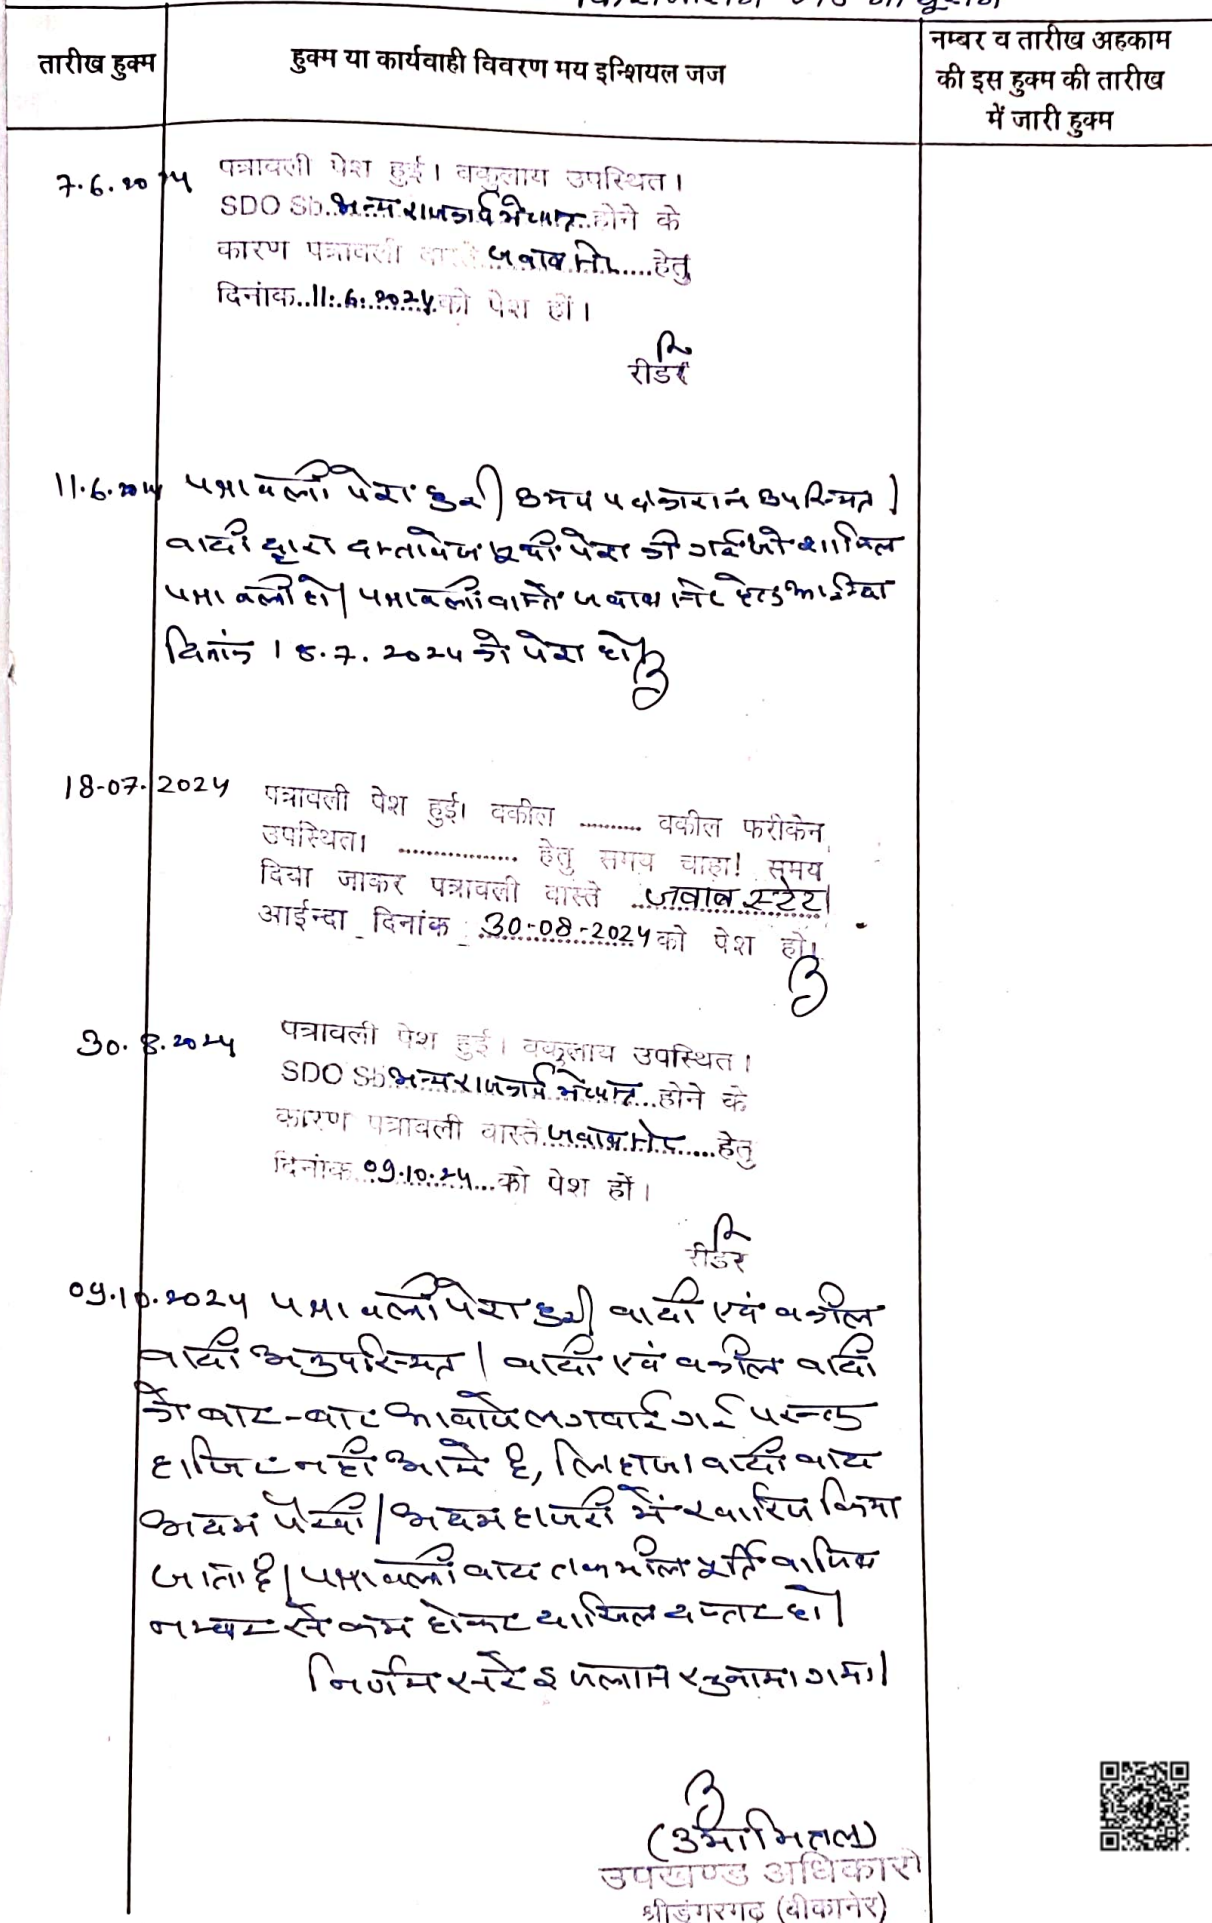 तारीख हुक्म
हुक्म या कार्यवाही विवरण मय इन्शियल जज
नम्बर व तारीख अहकाम
की इस हुक्म की तारीख
में जारी हुक्म
7.6.2024 पत्रावली पेश हुई। वकुलाय उपस्थित।
SDO Sb. अन्य राजकार्य में व्यस्त होने के
कारण पत्रावली वास्ते जवाब स्टे.....हेतु
दिनांक..11.6.2024.को पेश हों।
रीडर
11.6.2024 पत्रावली पेश हुई। उभय पक्षकारान उपस्थित।
वादी द्वारा दस्तावेज सूची पेश की गई जो शामिल
पत्रावली हो। पत्रावली वास्ते जवाब स्टे हेतु आईन्दा
दिनांक 18.7.2024 को पेश हो।
18-07-2024 पत्रावली पेश हुई। वकील .......... वकील फरीकेन
उपस्थित। ................. हेतु समय चाहा! समय
दिया जाकर पत्रावली वास्ते ..जवाब स्टे
आईन्दा दिनांक 30-08-2024 को पेश हो।
30.8.2024 पत्रावली पेश हुई। वकुलाय उपस्थित।
SDO Sb अन्य राजकार्य में व्यस्त..होने के
कारण पत्रावली वास्ते.जवाब स्टे......हेतु
दिनांक 09.10.24...को पेश हों।
रीडर
09.10.2024 पत्रावली पेश हुई। वादी एवं वकील
वादी अनुपस्थित। वादी एवं वकील वादी
को बार-बार आवाजे लगवाई गई परन्तु
हाजिर नही आये है, लिहाजा वादी वाद
अदम पैरवी/अदम हाजरी में खारिज किया
जाता है। पत्रावली वाद तकमील पूर्ति वाजिब
नम्बर से कम होकर दाखिल दफ्तर हो।
निर्णय सरे इजलास सुनाया गया।
(उमा मित्तल)
उपखण्ड अधिकारी
श्रीडूंगरगढ़ (बीकानेर)